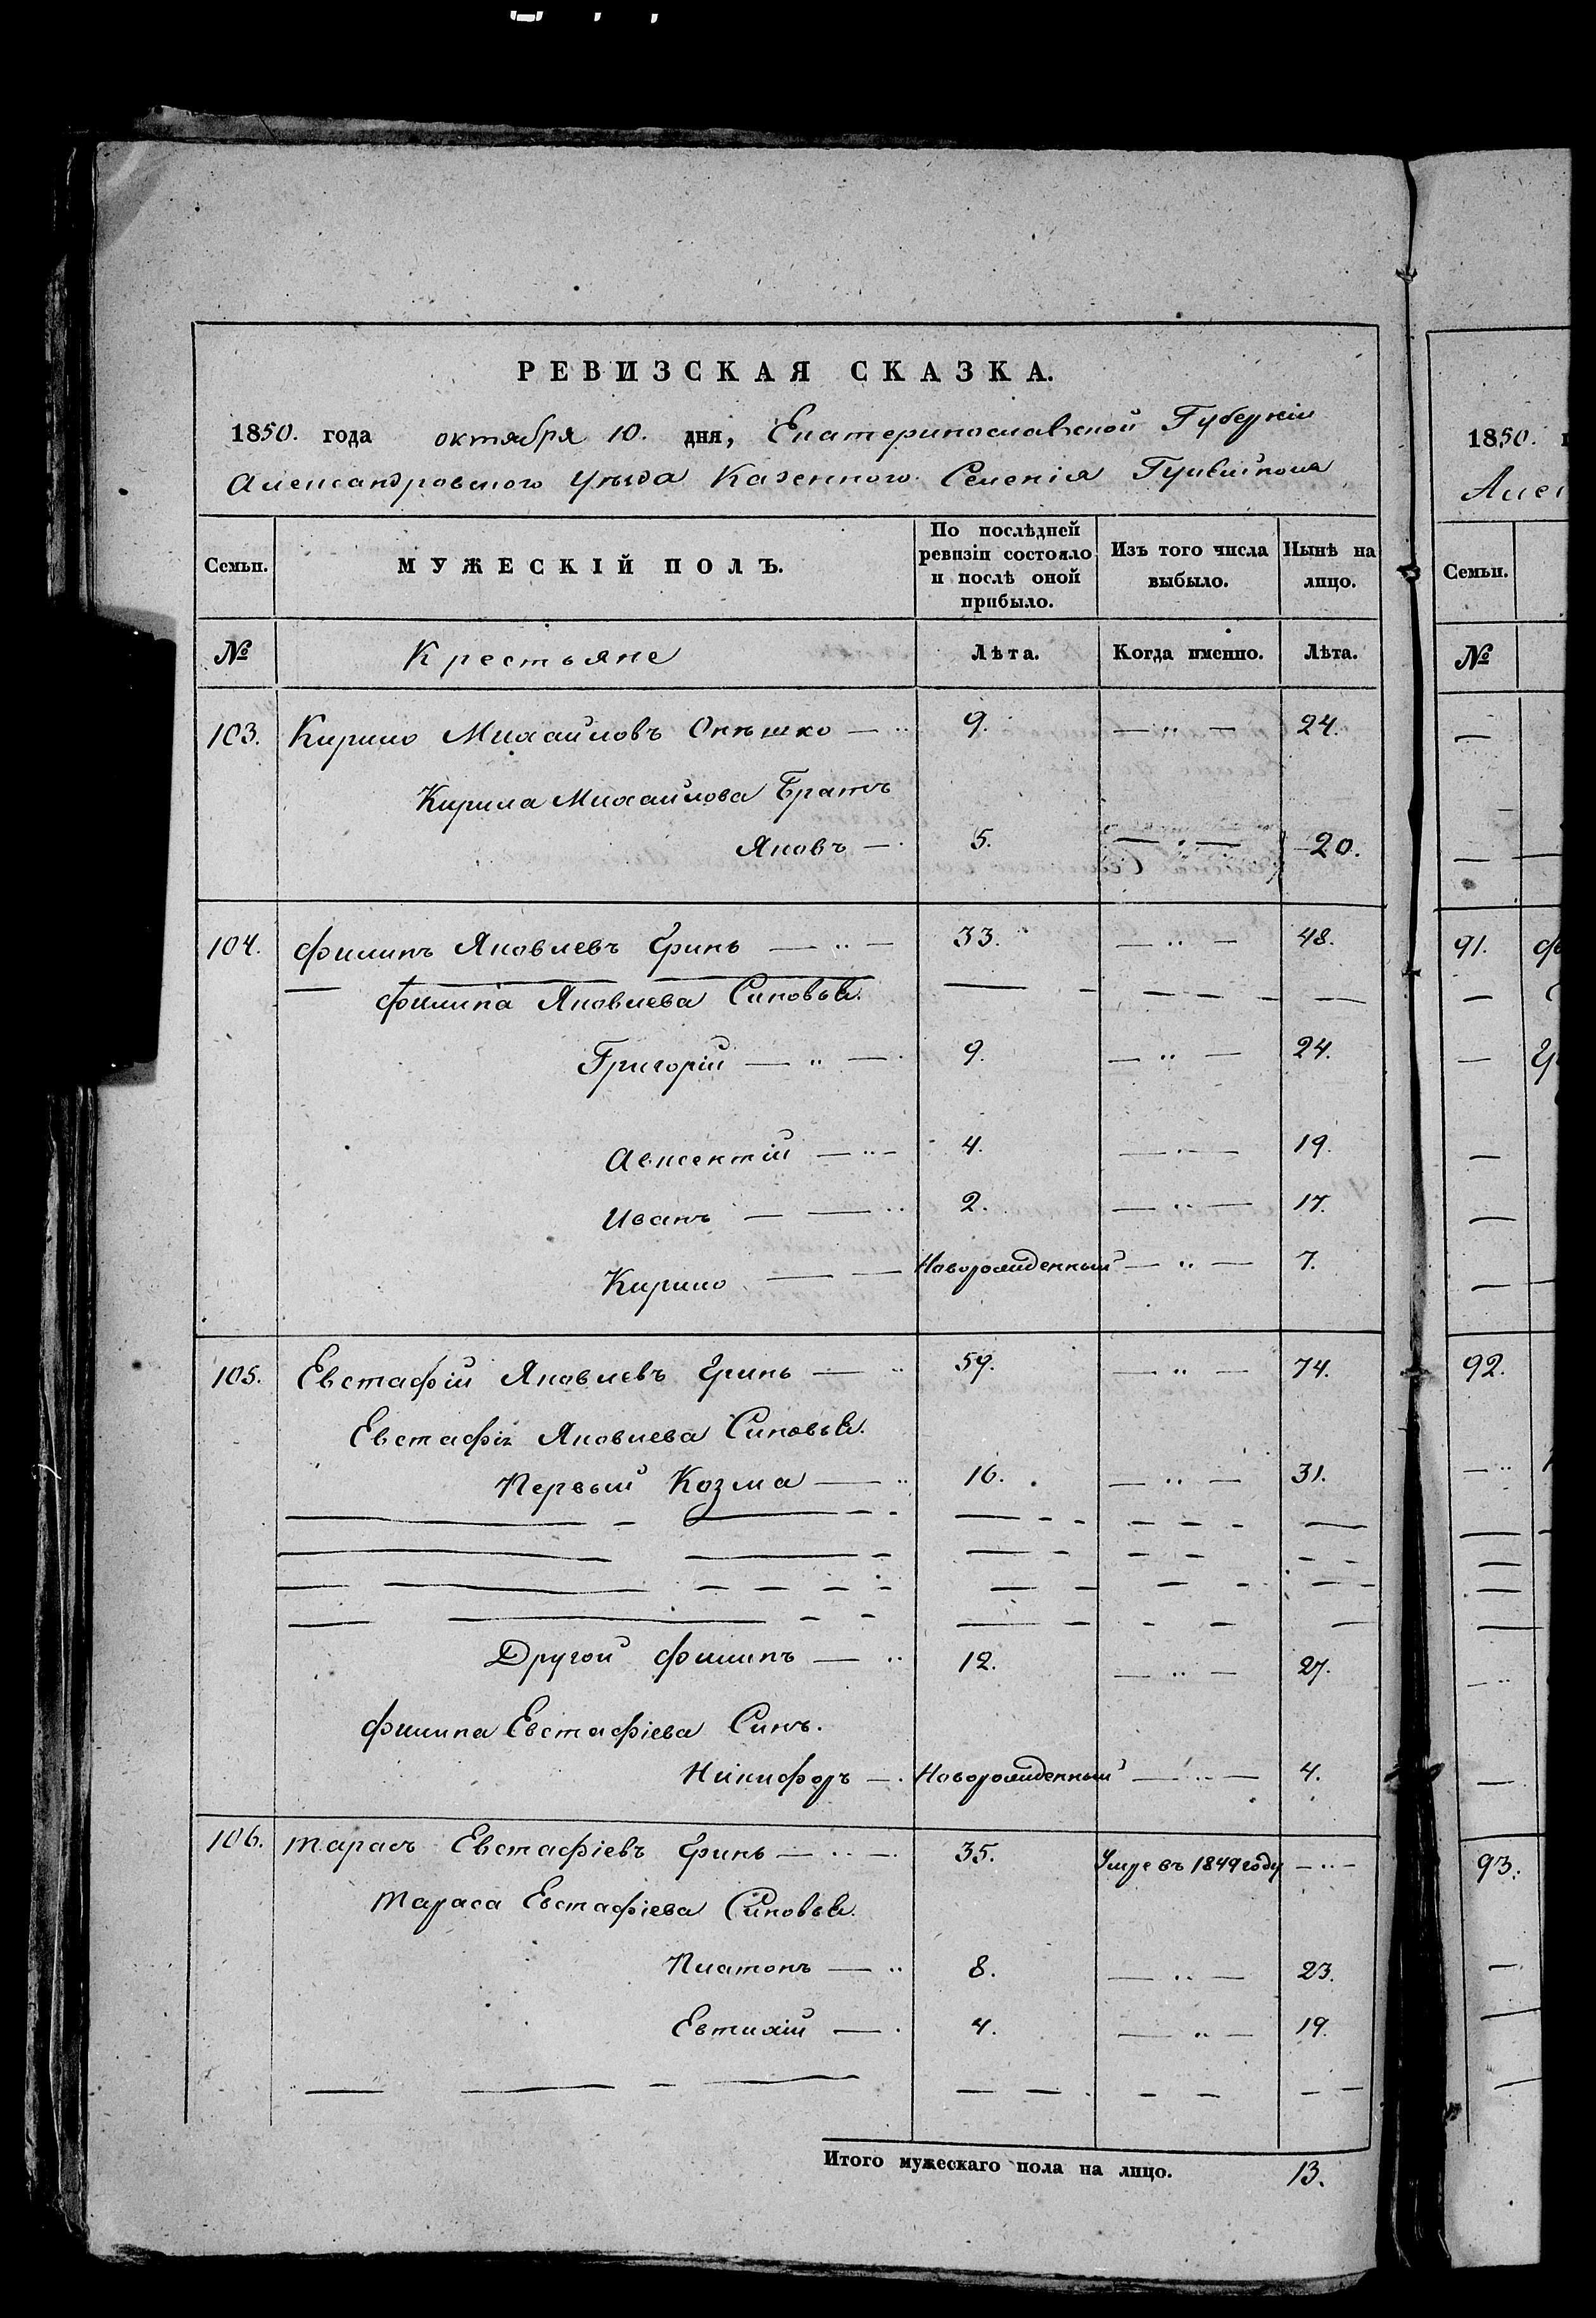 РЕВИЗСКАЯ СКАЗКА.
1850. года октября 10. дня, Екатеринославской Губерніи
Александровского Уѣзда Казенного Селенія Гуляйполя
Семьи. МУЖЕСКІЙ ПОЛЪ. По послѣдней ревизіи состояло и послѣ оной прибыло. Изъ того числа выбыло. Нынѣ на лицо.
№ Крестьяне Лѣта. Когда именно. Лѣта.
103. Кирило Михайловъ Онѣшко — 9. — 24.
Кирила Михайлова Братъ
Яковъ — 5. — 20.
104. Филипъ Яковлевъ Гринь — 33. — 48.
Филипа Яковлева Синовья.
Григорій — 9. — 24.
Авксентій — 4. — 19.
Иванъ — 2. — 17.
Кирило — Новорожденный — 7.
105. Евстафій Яковлевъ Гринь — 59. — 74.
Евстафія Яковлева Синовья.
Первый Козма — 16. — 31.
Другой Филипъ — 12. — 27.
Филипа Евстафіева Синъ.
Никифоръ — Новорожденный — 4.
106. Тарасъ Евстафіевъ Гринь — 35. Умре въ 1849 году —
Тараса Евстафіева Синовья.
Платонъ — 8. — 23.
Евтихій — 4. — 19.
Итого мужескаго пола на лицо. 13.
1850.
Семьи.
№
91.
92.
93.